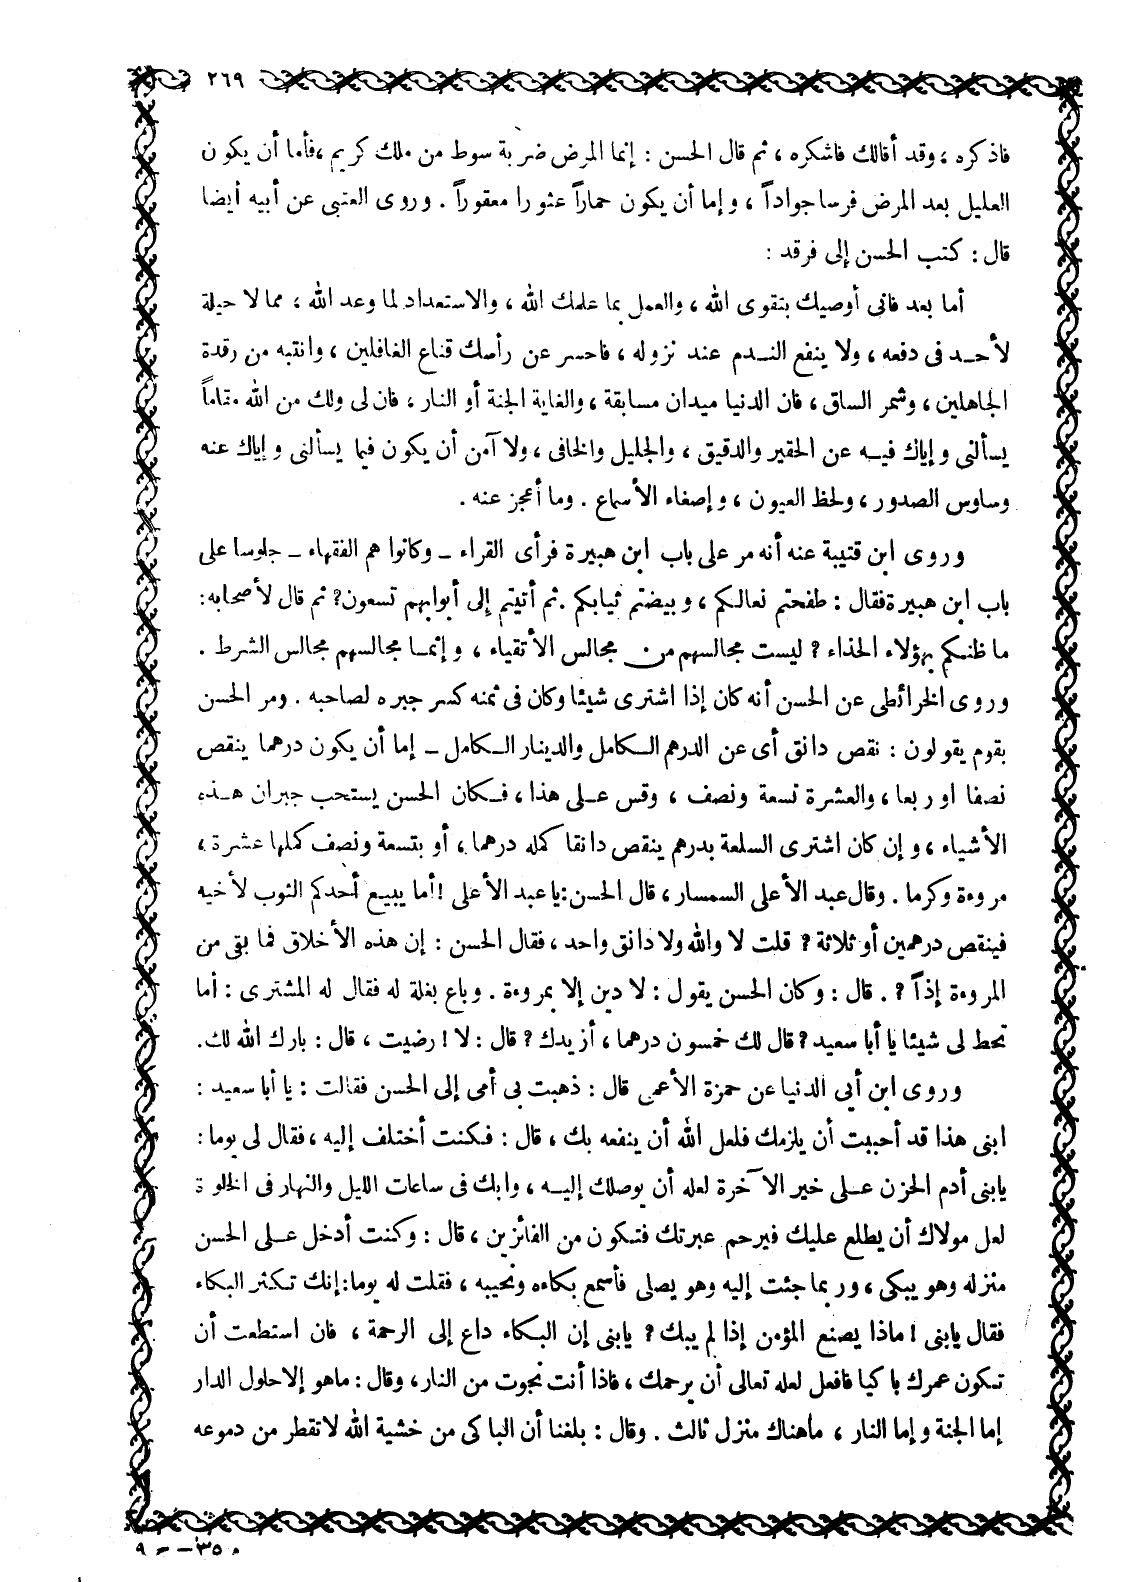 ٢٦٩
فاذكره ، وقد أقالك فاشكره ، ثم قال الحسن : إنما المرض ضربة سوط من ملك كريم ، فأما أن يكون
العليل بعد المرض فرسا جواداً ، و إما أن يكون حماراً عثورا معقوراً . وروى العتبى عن أبيه أيضا
قال : كتب الحسن إلى فرقد :
أما بعد فانى أوصيك بتقوى الله ، والعمل بما علمك الله ، والاستعداد لما وعد الله ، مما لا حيلة
لأحد فى دفعه ، ولا ينفع الندم عند نزوله ، فاحسر عن رأسك قناع الغافلين ، وانتبه من رقدة
الجاهلين ، وشمر الساق ، فان الدنيا ميدان مسابقة ، والغاية الجنة أو النار ، فان لى ولك من الله مقاماً
يسألنى و إياك فيه عن الحقير والدقيق ، والجليل والخافى ، ولا آمن أن يكون فيما يسألنى و إياك عنه
وساوس الصدور ، ولحظ العيون ، و إصغاء الأسماع . وما أعجز عنه .
وروى ابن قتيبة عنه أنه مر على باب ابن هبيرة فرأى القراء - وكانوا هم الفقهاء - جلوسا على
باب ابن هبيرة فقال : طفحتم نعالكم ، و بيضتم ثيابكم . ثم أتيتم إلى أبوابهم تسعون ? ثم قال لأصحابه :
ما ظنكم بهؤلاء الحذاء ? ليست مجالسهم من مجالس الأتقياء ، و إنما مجالسهم مجالس الشرط .
وروى الخرائطى عن الحسن أنه كان إذا اشترى شيئا وكان فى ثمنه كسر جبره لصاحبه . ومر الحسن
بقوم يقولون : نقص دانق أى عن الدرهم الكامل والدينار الكامل - إما أن يكون درهما ينقص
نصفا او ربعا ، والعشرة تسعة ونصف ، وقس على هذا ، فكان الحسن يستحب جبران هذه
الأشياء ، و إن كان اشترى السلعة بدرهم ينقص دانقا كمله درهما ، أو بتسعة ونصف كملها عشرة ،
مروءة وكرما . وقال عبد الأعلى السمسار ، قال الحسن : يا عبد الأعلى ! أما يبيع أحدكم الثوب لأخيه
فينقص درهمين أو ثلاثة ? قلت لا والله ولا دانق واحد ، فقال الحسن : إن هذه الأخلاق فما بقى من
المروءة إذاً ? . قال : وكان الحسن يقول : لا دين إلا بمروءة . وباع بغلة له فقال له المشترى : أما
تحط لى شيئا يا أبا سعيد ? قال لك خمسون درهما ، أزيدك ? قال : لا ! رضيت ، قال : بارك الله لك .
وروى ابن أبى الدنيا عن حمزة الأعمى قال : ذهبت بى أمى إلى الحسن فقالت : يا أبا سعيد :
ابنى هذا قد أحببت أن يلزمك فلعل الله أن ينفعه بك ، قال : فكنت أختلف إليه ، فقال لى يوما :
يابنى أدم الحزن على خير الآخرة لعله أن يوصلك إليه ، وابك فى ساعات الليل والنهار فى الخلوة
لعل مولاك أن يطلع عليك فيرحم عبرتك فتكون من الفائزين ، قال : وكنت أدخل على الحسن
منزله وهو يبكى ، وربما جئت إليه وهو يصلى فأسمع بكاءه ونحيبه ، فقلت له يوما : إنك تكثر البكاء
فقال يابنى ! ماذا يصنع المؤمن إذا لم يبك ? يابنى إن البكاء داع إلى الرحمة ، فان استطعت أن
تكون عمرك باكيا فافعل لعله تعالى أن يرحمك ، فاذا أنت نجوت من النار ، وقال : ماهو إلا حلول الدار
إما الجنة و إما النار ، ماهناك منزل ثالث . وقال : بلغنا أن الباكى من خشية الله لا تقطر من دموعه
٣٥ - - ٩